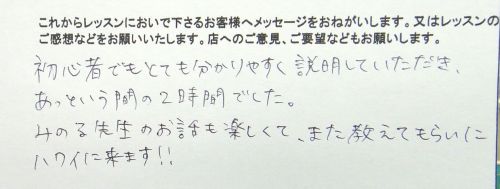 これからレッスンにおいで下さるお客様へメッセージをおねがいします。又はレッスンの
ご感想などをお願いいたします。店へのご意見、ご要望などもお願します。
初心者でもとても分かりやすく説明していただき、
あっという間の2時間でした。
みのる先生のお話も楽しくて、また教えてもらいに
ハワイに来ます!!